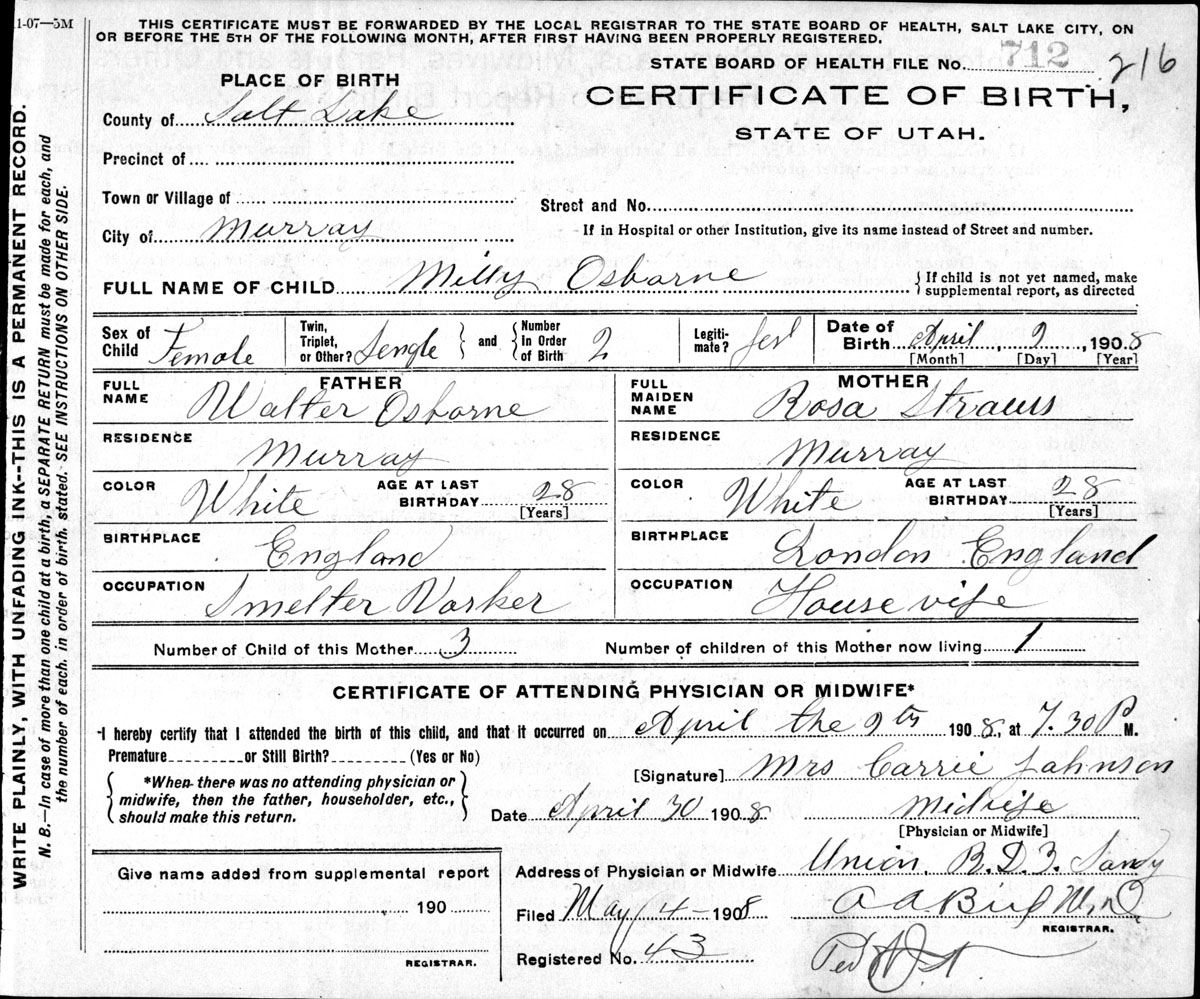 1-07—5M
THIS CERTIFICATE MUST BE FORWARDED BY THE LOCAL REGISTRAR TO THE STATE BOARD OF HEALTH, SALT LAKE CITY, ON
OR BEFORE THE 5TH OF THE FOLLOWING MONTH, AFTER FIRST HAVING BEEN PROPERLY REGISTERED.
STATE BOARD OF HEALTH FILE No. 712 216
PLACE OF BIRTH
CERTIFICATE OF BIRTH,
STATE OF UTAH.
County of Salt Lake
Precinct of
Town or Village of
Street and No.
City of Murray
If in Hospital or other Institution, give its name instead of Street and number.
FULL NAME OF CHILD Milly Osborne
{ If child is not yet named, make
supplemental report, as directed
Sex of Child Female
Twin, Triplet, or Other? Sengle } and { Number In Order of Birth 2
Legiti-mate? Jes
Date of Birth April 9, 1908
[Month] [Day] [Year]
FATHER
FULL NAME Walter Osborne
RESIDENCE Murray
COLOR White AGE AT LAST BIRTHDAY 28 [Years]
BIRTHPLACE England
OCCUPATION Smelter Varker
MOTHER
FULL MAIDEN NAME Rosa Straus
RESIDENCE Murray
COLOR White AGE AT LAST BIRTHDAY 28 [Years]
BIRTHPLACE London England
OCCUPATION House vife
Number of Child of this Mother 3 Number of children of this Mother now living 1
CERTIFICATE OF ATTENDING PHYSICIAN OR MIDWIFE*
I hereby certify that I attended the birth of this child, and that it occurred on April the 9th 1908, at 7.30 P M.
Premature or Still Birth? (Yes or No)
{ *When there was no attending physician or
midwife, then the father, householder, etc.,
should make this return. }
[Signature] Mrs Carrie Johnson
Date April 30 1908 Midvife
[Physician or Midwife]
Address of Physician or Midwife Union, R.D.3. Sandy
Give name added from supplemental report
190
REGISTRAR.
Filed May 4 - 1908 M.D.
REGISTRAR.
Registered No. 43
WRITE PLAINLY, WITH UNFADING INK--THIS IS A PERMANENT RECORD.
N. B.—In case of more than one child at a birth, a SEPARATE RETURN must be made for each, and
the number of each, in order of birth, stated. SEE INSTRUCTIONS ON OTHER SIDE.